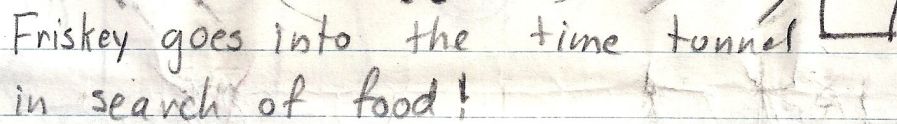 Friskey goes into the time tunnel
in search of food!